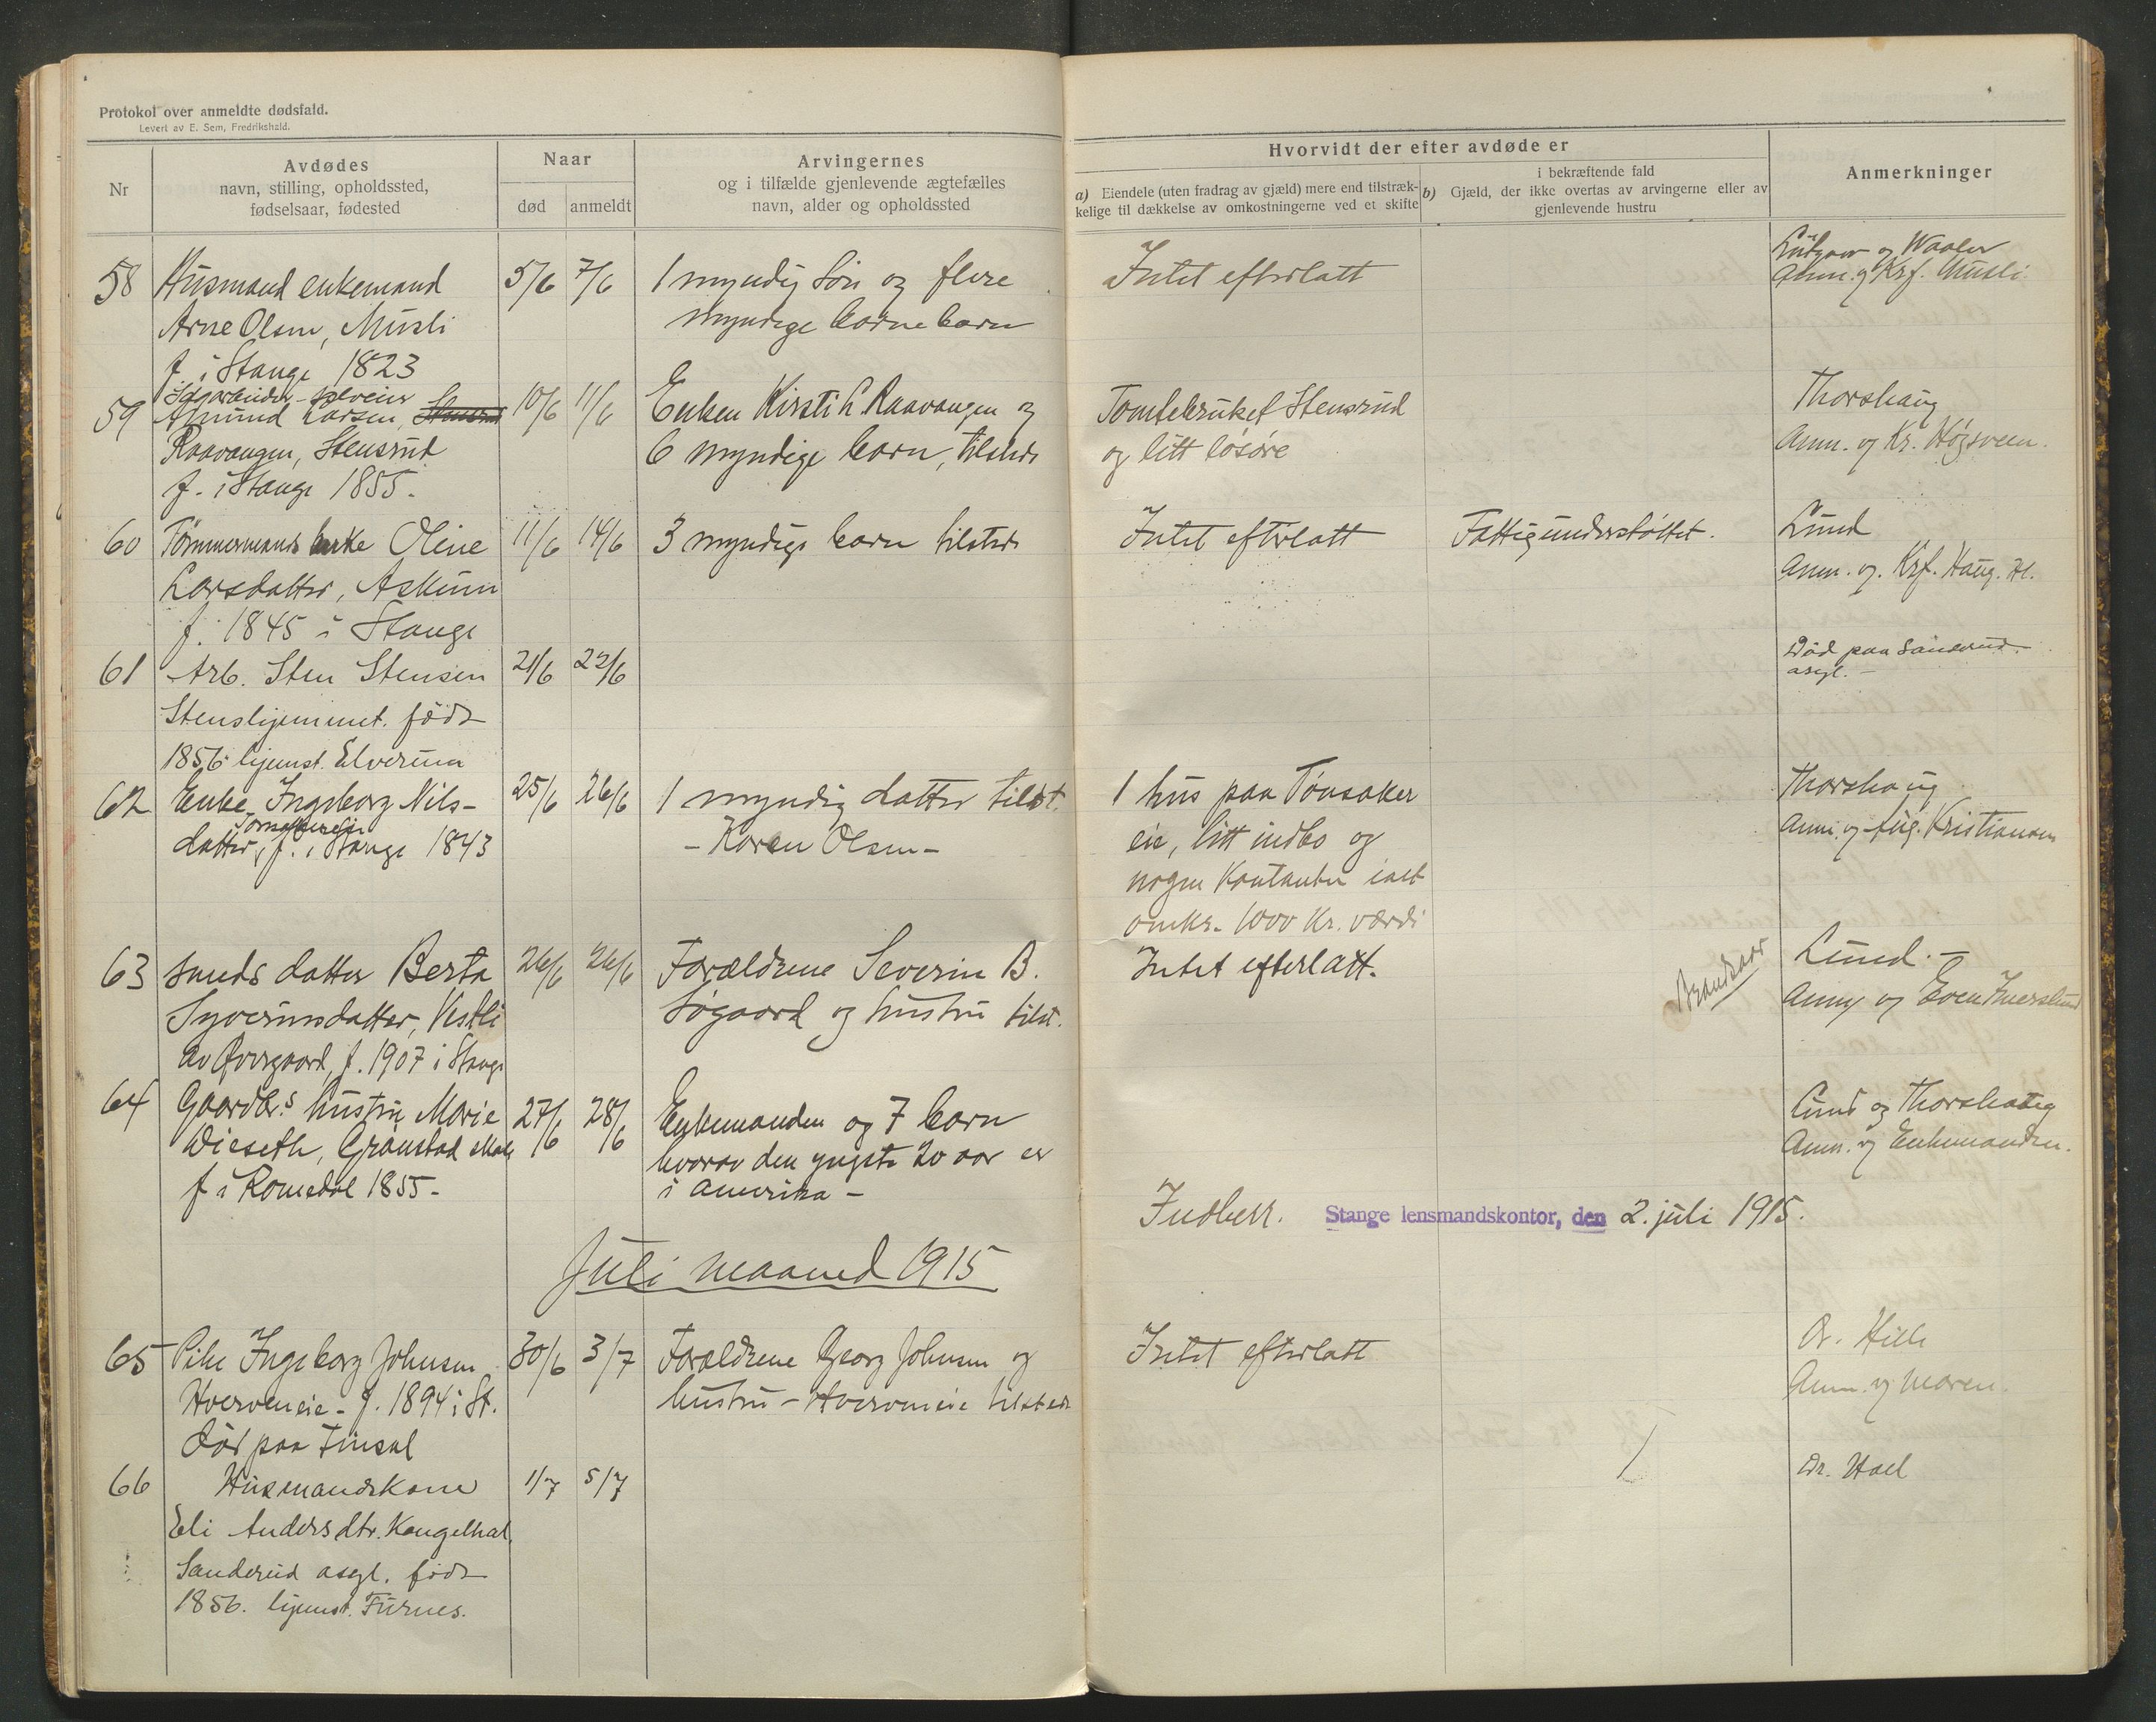 Protokol over anmeldte dødsfald.
Levert av E. Sem, Fredrikshald.
Nr
Avdødes
navn, stilling, opholdssted,
fødselsaar, fødested
Naar
død
anmeldt
Arvingernes
og i tilfælde gjenlevende ægtefælles
navn, alder og opholdssted
Hvorvidt der efter avdøde er
a) Eiendele (uten fradrag av gjæld) mere end tilstræk-
kelige til dækkelse av omkostningerne ved et skifte
i bekræftende fald
b) Gjæld, der ikke overtas av arvingerne eller av
gjenlevende hustru
Anmerkninger
58
Husmand enkemand
Arne Olsen, Musli
f. i Stange 1823
5/6
7/6
1 myndig søn og flere
myndige barnebarn
Intet efterlatt
og Waaler
Anm. og Krf. Musli
59
Amund Larsen,
Raavangen, Stensrud
f. i Stange 1855.
10/6
11/6
Enken Kirsti L Raavangen og
6 myndige barn, tilsteds
Tomtebruket Stensrud
og litt løsøre
Thorshaug
Anm. og Kr. Høgsveen.
60
Tømmermands enke Oline
Larsdatter, Askum
f. 1845 i Stange
11/6
14/6
3 myndige barn tilsteds
Intet efterlatt
Fattigunderstøttet.
Lund
Anm. og. Krf. Haug. Hl.
61
Arb. Sten Stensen
Stenshjemmet. født
1856. hjemst. Elverum
21/6
22/6
Død paa Sanderud.
asyl. –
62
Enke Ingeborg Nils-
datter, f. i Stange 1843
25/6
26/6
1 myndig datter tilst.
– Karen Olsen –
1 hus paa Tønsaker
eie, litt indbo og
nogen Kontanter ialt
omkr. 1000 Kr. værdi
Thorshaug
Anm. og Aug. Kristiansen
63
Smeds datter Berta
Syverinsdatter, Vestli
av Øvergaard, f. 1907 i Stange
26/6
26/6
Forældrene Severin B.
Søgaard og hustru tilst.
Intet efterlatt.
Brandsaar
Lund. –
Anm og Even Imerslund
64
Gaardbr.s hustru Marie
Wieseth, Granstad
f i Romedal 1855 –
27/6
28/6
Enkemanden og 7 barn
hvorav den yngste 20 aar er
i Amerika –
Lund og Thorshaug
Anm. og Enkemanden.
Indberr. Stange lensmandskontor, den 2. juli 1915.
Juli maaned 1915
65
Pike Ingeborg Johnsen
Hverveneie – f. 1894 i St.
død paa Tinsal
30/6
3/7
Forældrene Georg Johnsen og
hustru – Hverveneie tilsteds
Intet efterlatt
Dr. Hille
Anm. og moren.
66
Husmandskone
Eli Andersdtr. Kongelhal.
Sanderud asyl. født
1856. hjemst. Furnes.
1/7
5/7
Dr. Hoel